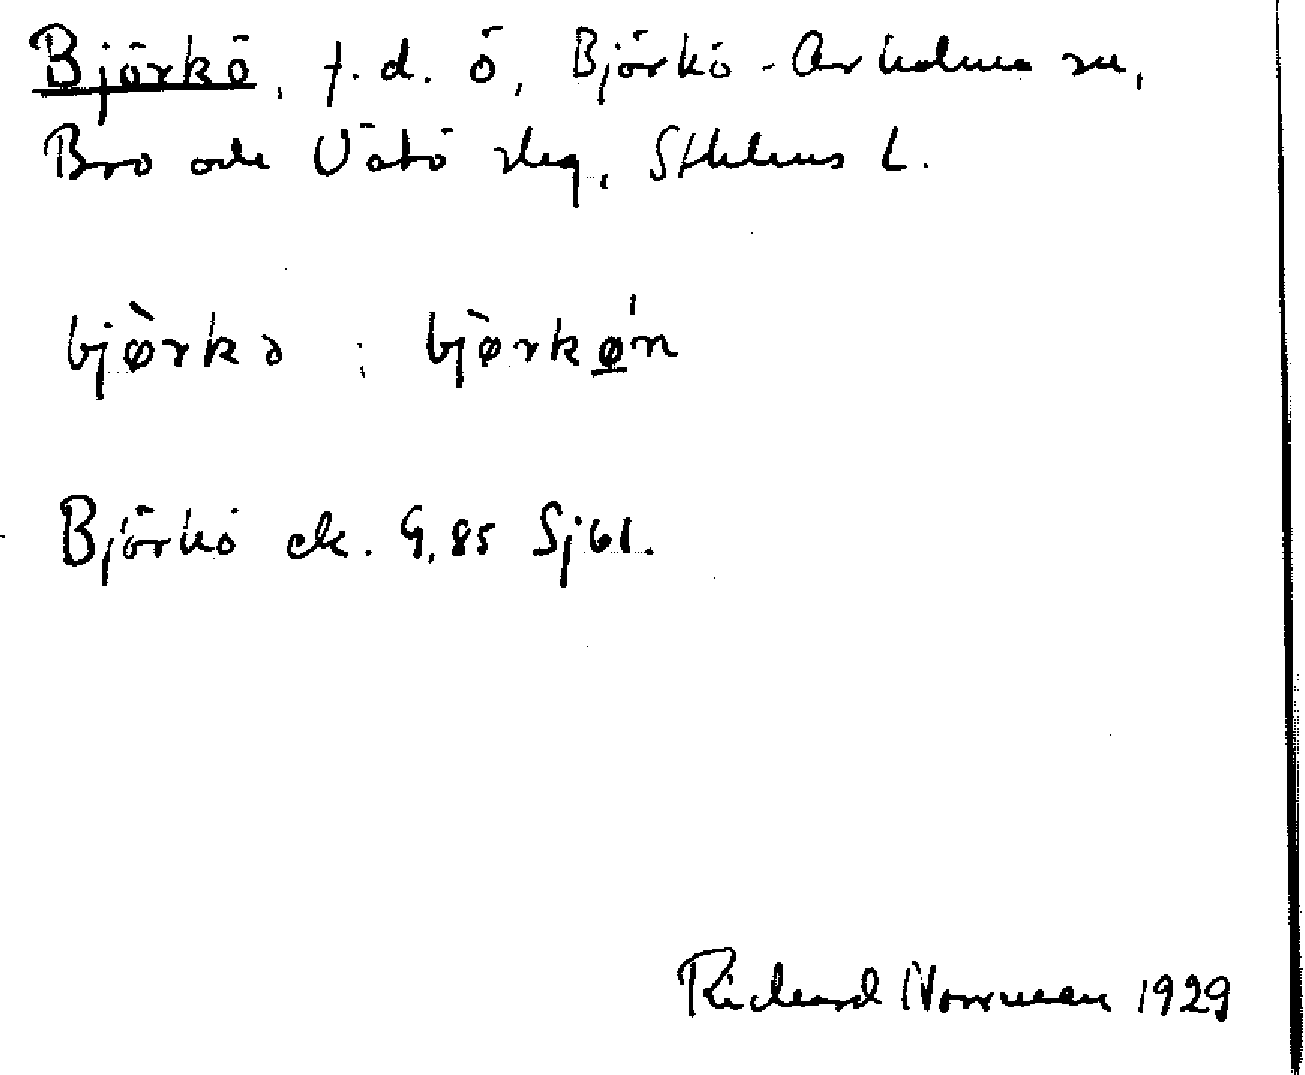 Björkö, f. d. ö, Björkö-Arholma sn,
Bro och Vätö slg, Sthlms L.
bjø̀rkə : bjø̀rkǿ̲n
Björkö ek. G. 85 Sjöbl.
Richard Norrman 1929